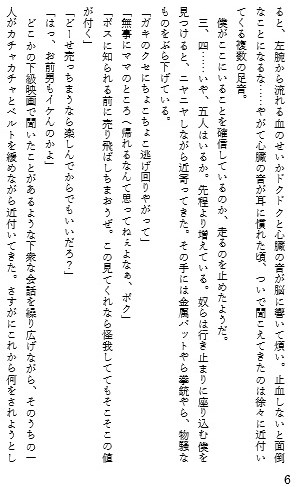 ると、左腕から流れる血のせいかドクドクと心臓の音が脳に響いて煩い。止血しないと面倒
なことになるな……やがて心臓の音が耳に慣れた頃、ついで聞こえてきたのは徐々に近付い
てくる複数の足音。
僕がここにいることを確信しているのか、走るのを止めたようだ。
三、四……いや、五人はいるか。先程より増えている。奴らは行き止まりに座り込む僕を
見つけると、ニヤニヤしながら近寄ってきた。その手には金属バットやら拳銃やら、物騒な
ものをぶら下げている。
「ガキのクセにちょこちょこ逃げ回りやがって」
「無事にママのところへ帰れるなんて思ってねぇよなぁ、ボク」
「ボスに知られる前に売り飛ばしちまおうぜ。この見てくれなら怪我しててもそこそこの値
が付く」
「どーせ売っちまうなら楽しんでからでもいいだろ?」
「はっ、お前男もイケんのかよ」
どこかの下級映画で聞いたことがあるような下衆な会話を繰り広げながら、そのうちの一
人がカチャカチャとベルトを緩めながら近付いてきた。さすがにこれから何をされようとし
6